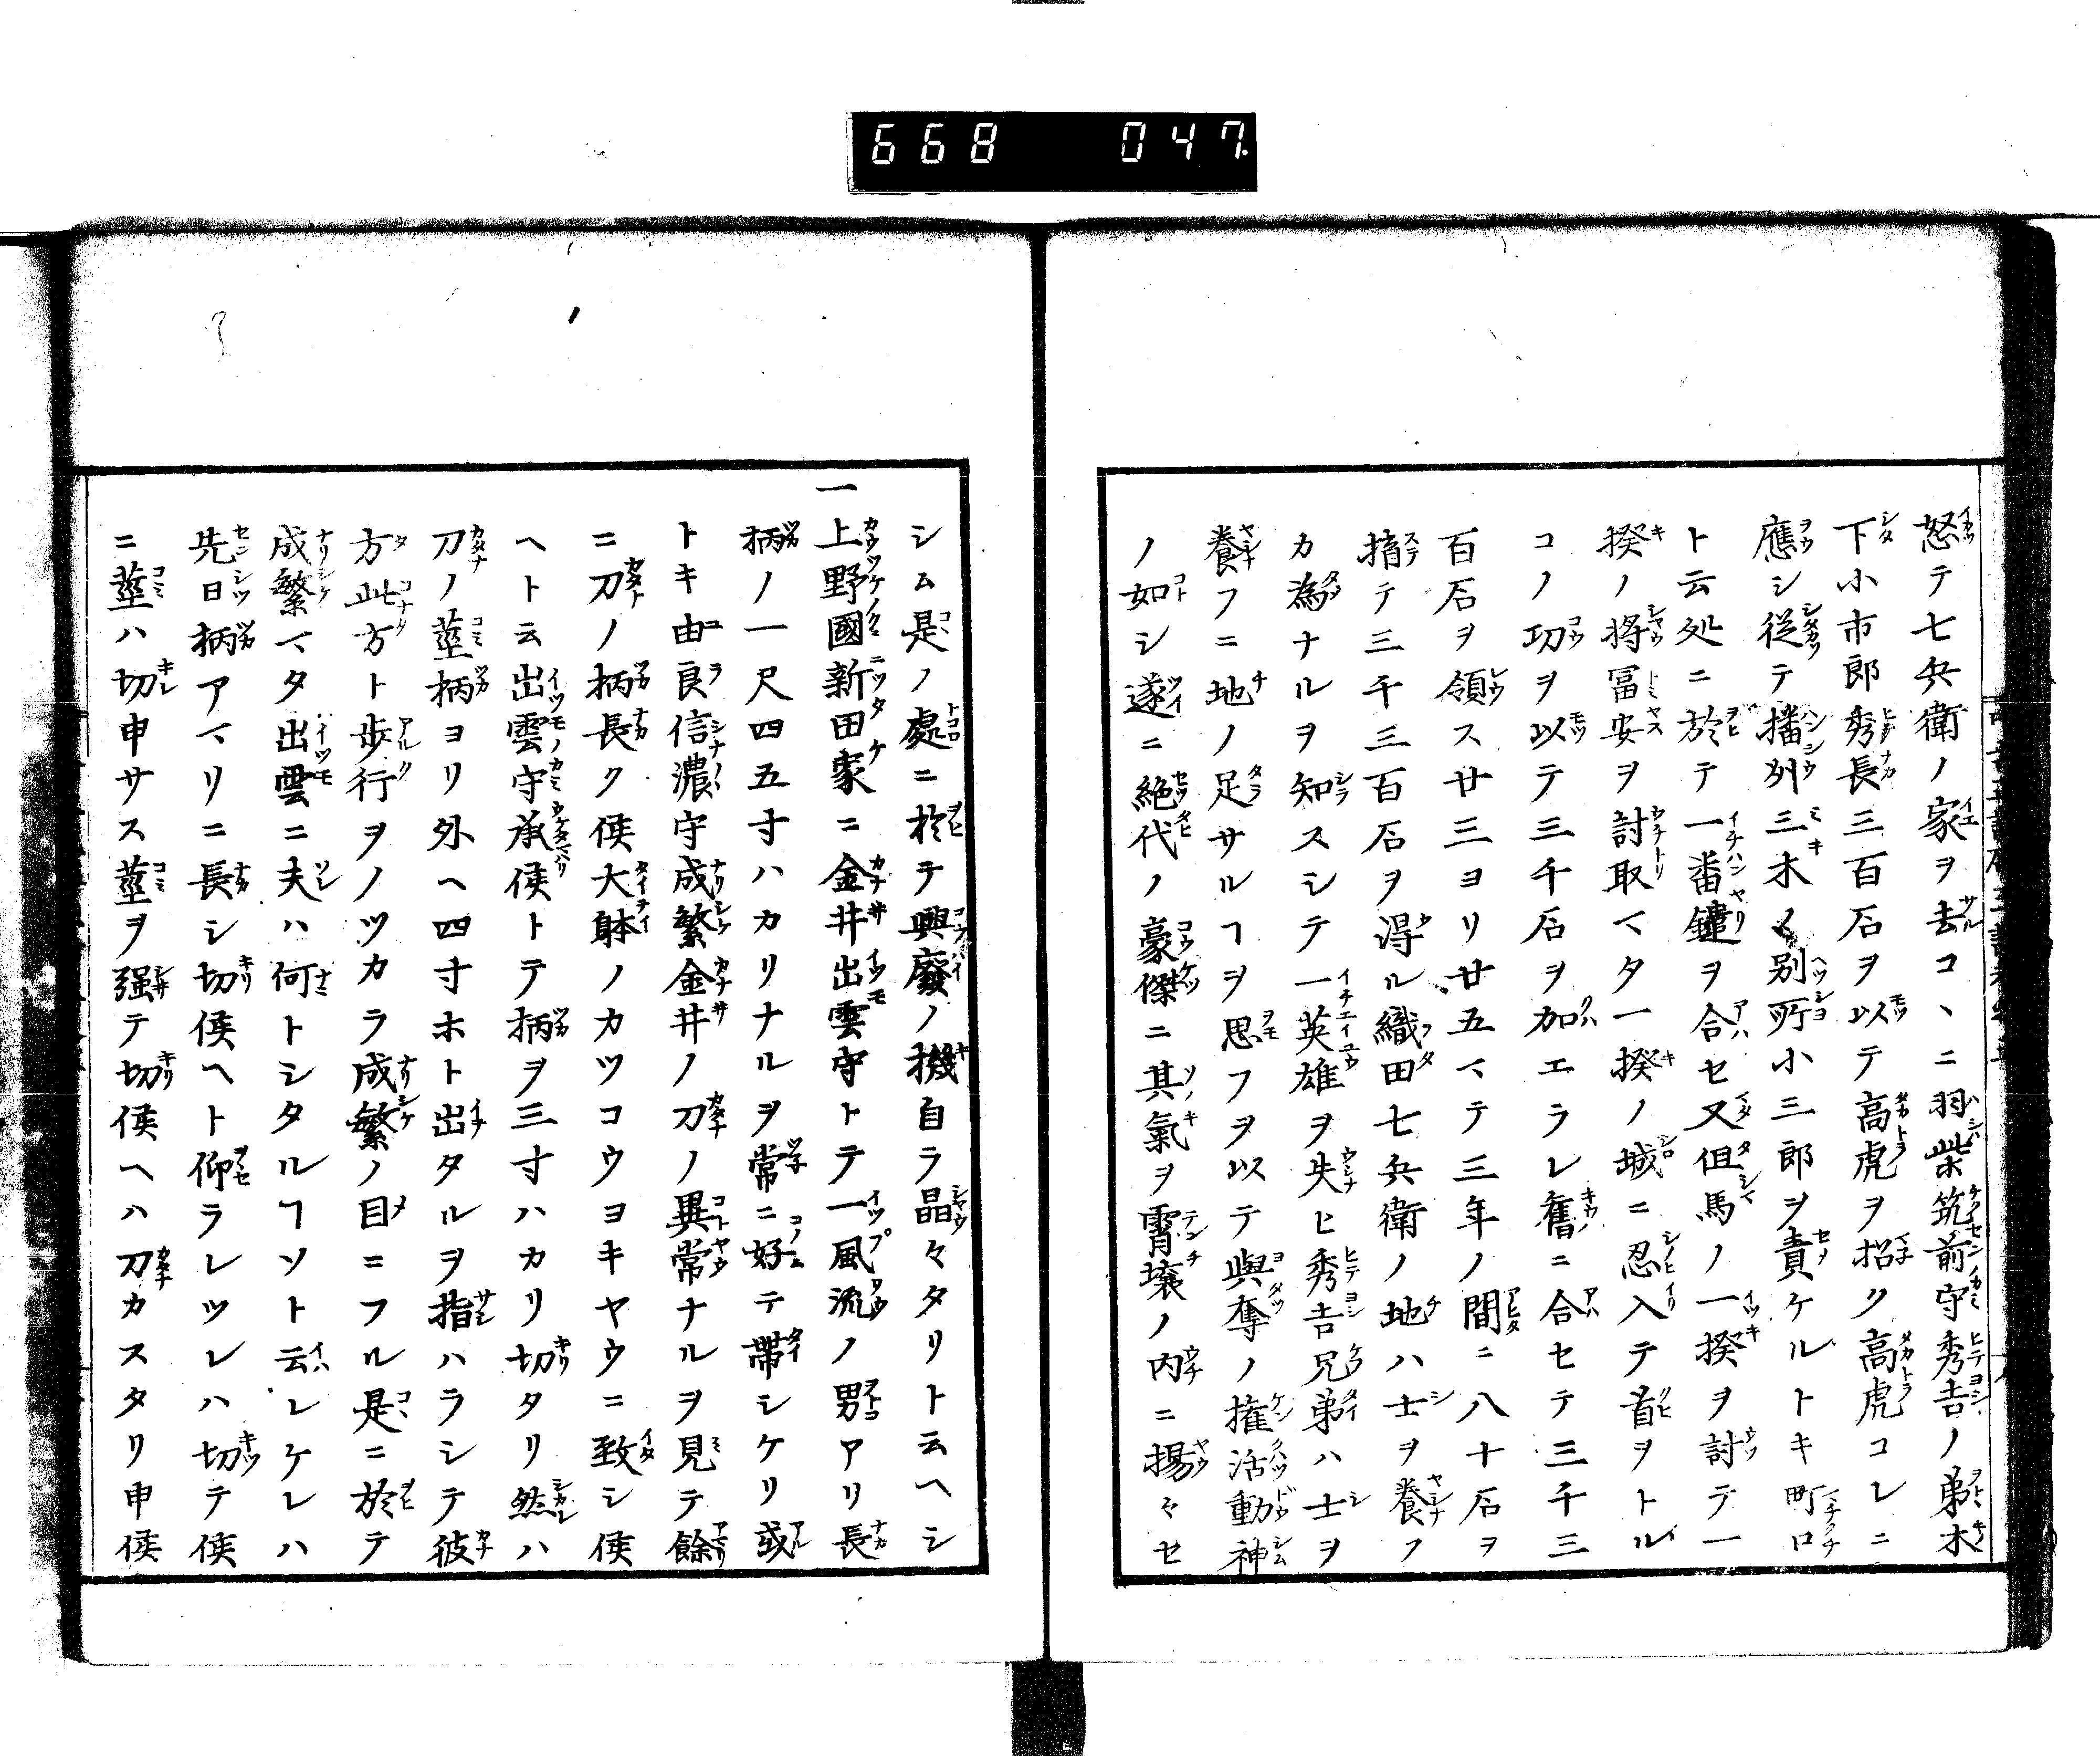 668 047
怒テ七兵衛ノ家ヲ去コヽニ羽柴筑前守秀吉ノ弟木
下小市郎秀長三百石ヲ以テ高虎ヲ招ク高虎コレニ
應シ従テ播州三木ノ別所小三郎ヲ責ケルトキ町口
ト云処ニ於テ一番鑓ヲ合セ又但馬ノ一揆ヲ討テ一
揆ノ将冨安ヲ討取マタ一揆ノ城ニ忍入テ首ヲトル
コノ功ヲ以テ三千石ヲ加エラレ舊ニ合セテ三千三
百石ヲ領ス廿三ヨリ廿五マテ三年ノ間ニ八十石ヲ
捐テ三千三百石ヲ得ル織田七兵衛ノ地ハ士ヲ養フ
カ為ナルヲ知スシテ一英雄ヲ失ヒ秀吉兄弟ハ士ヲ
養フニ地ノ足サルヿヲ思フヲ以テ與奪ノ権活動神
ノ如シ遂ニ絶代ノ豪傑ニ其氣ヲ霄壌ノ内ニ揚々セ
シム是ノ處ニ於テ興廢ノ機自ラ晶々タリト云ヘシ
一上野國新田家ニ金井出雲守トテ一風流ノ男アリ長
柄ノ一尺四五寸ハカリナルヲ常ニ好テ帯シケリ或
トキ由良信濃守成繁金井ノ刀ノ異常ナルヲ見テ餘
ニ刀ノ柄長ク候大躰ノカツコウヨキヤウニ致シ候
ヘト云出雲守承候トテ柄ヲ三寸ハカリ切タリ然ハ
刀ノ莖柄ヨリ外ヘ四寸ホト出タルヲ指ハラシテ彼
方此方ト歩行ヲノツカラ成繁ノ目ニフル是ニ於テ
成繁マタ出雲ニ夫ハ何トシタルヿソト云レケレハ
先日柄アマリニ長シ切候ヘト仰ラレツレハ切テ候
ニ莖ハ切申サス莖ヲ强テ切候ヘハ刀カスタリ申候